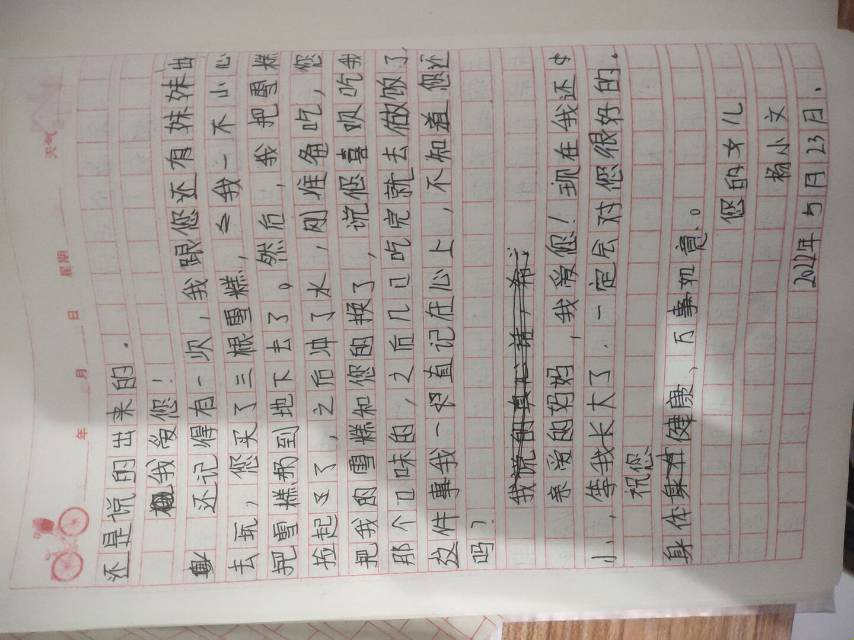 年 月 日 星期 天气
还是说的出来的。
我爱您！
还记得有一次，我跟您还有妹妹出
去玩，您买了三根雪糕，我一不小心
把雪糕弄到地下去了。然后，我把雪糕
捡起了，之后冲了水，刚准备吃，您
把我的雪糕和您的换了，说您喜欢吃我
那个口味的，之后几口吃完就去做饭了，
这件事我一直记在心上，不知道您还
吗？
我说的真心话，希
亲爱的妈妈，我爱您！现在我还
小，等我长大了，一定会对您很好的。
祝您
身体健康、万事如意。
您的女儿
杨小文
2022年5月23日。